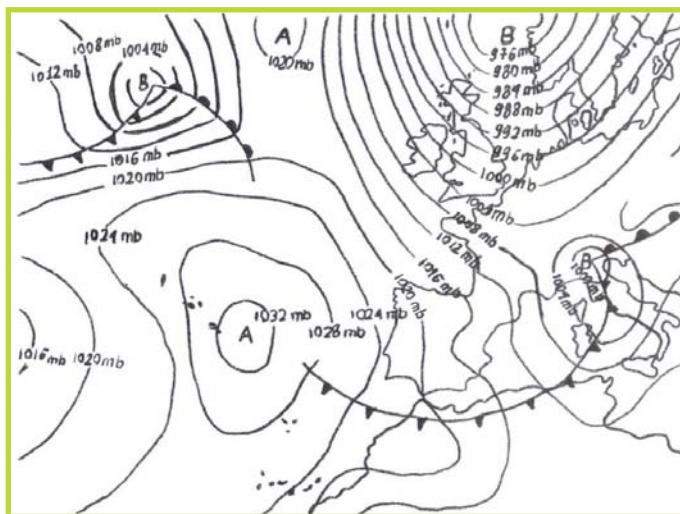 1012 mb
1008 mb
1004 mb
B
A
1020 mb
B
976 mb
980 mb
984 mb
988 mb
992 mb
996 mb
1000 mb
1004 mb
1008 mb
1012 mb
1016 mb
1020 mb
1016 mb
1020 mb
1024 mb
A
1032 mb
1028 mb
1024 mb
1016 mb
1020 mb
B
1004 mb